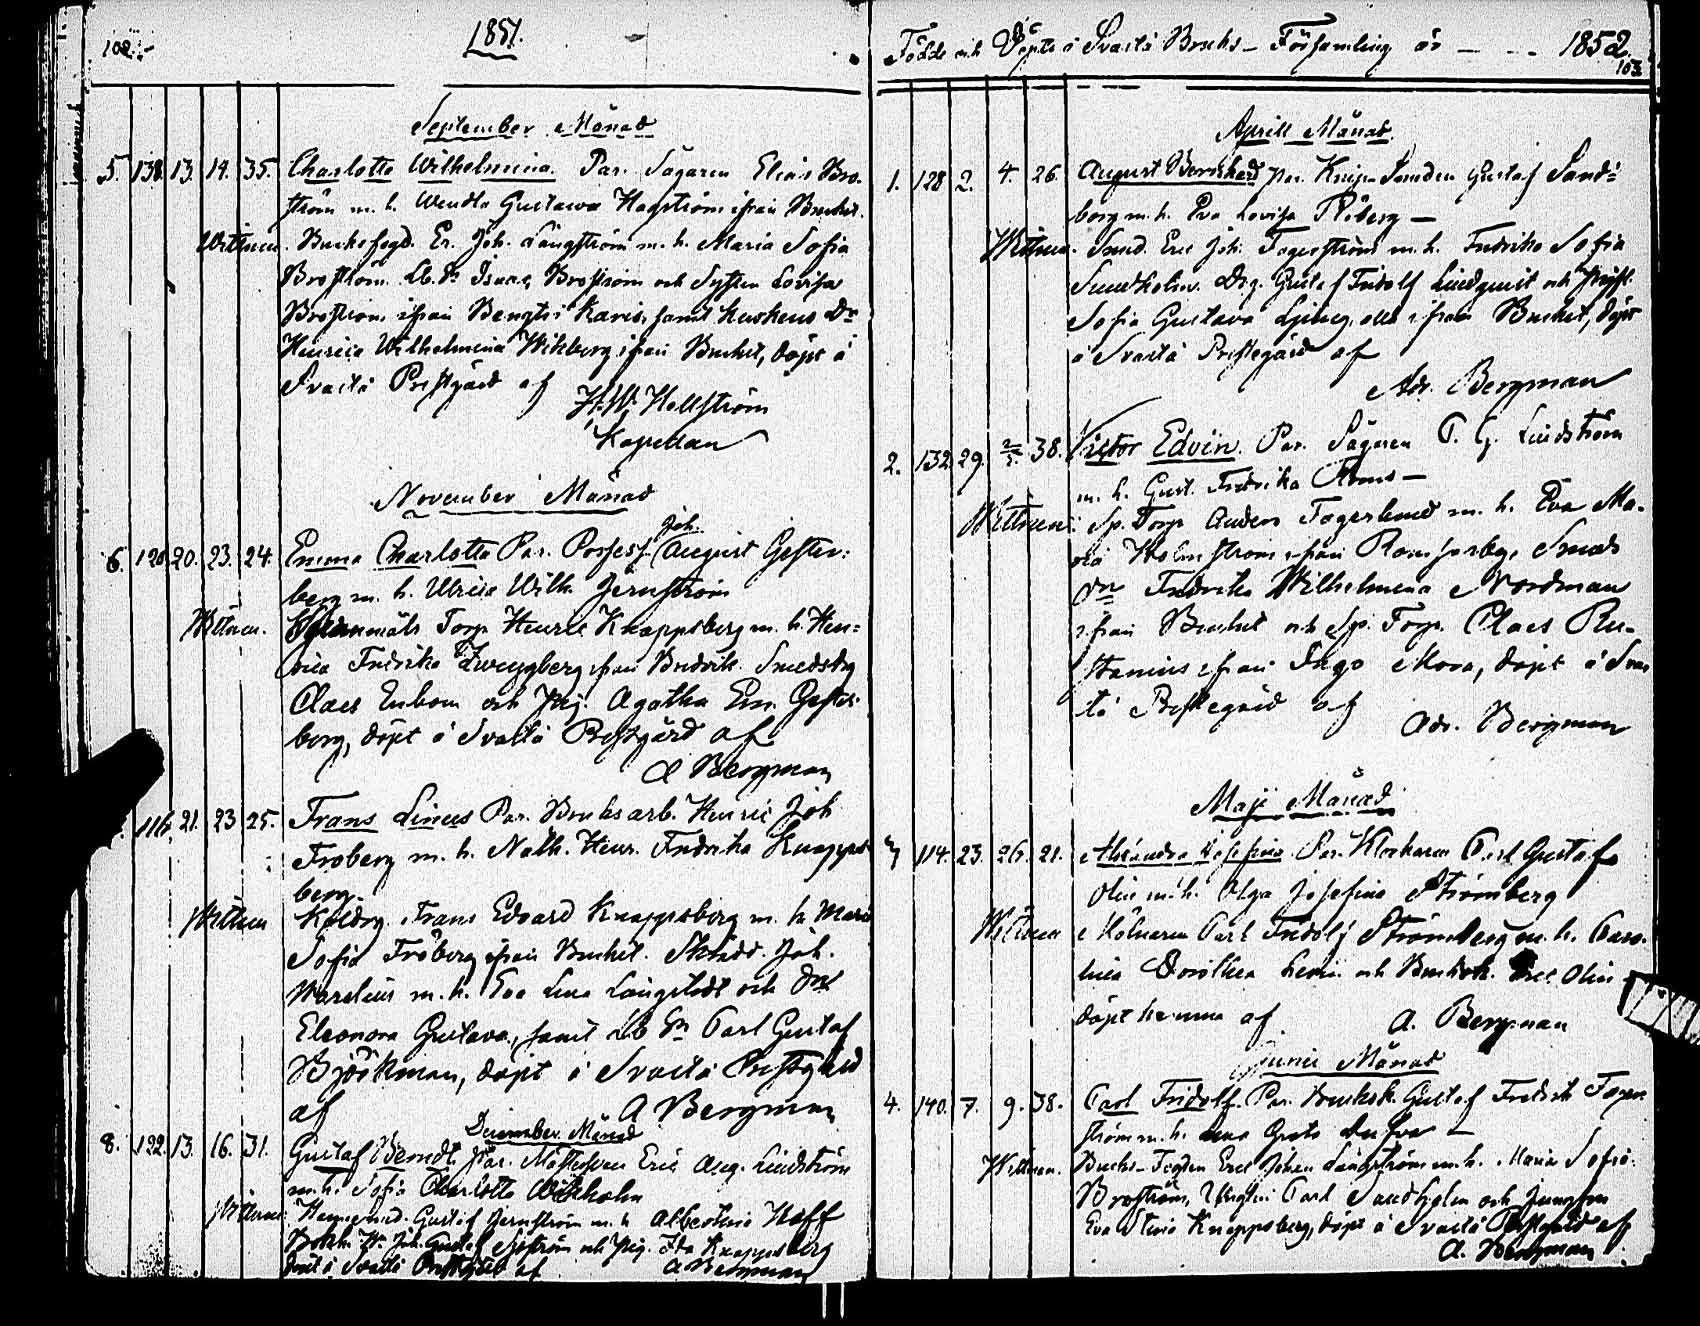 102.
1851.
September Månad
5. 138. 13. 14. 35. Charlotta Wilhelmina. Par. Sågaren Elias Bro-
ström m. h. Wendla Gustawa Hagström ifrån Bruket.
Wittnen. Bruksfogd. Er. Joh. Långström m. h. Maria Sofia
Broström. Isaac Broström och Systern Lovisa
Broström ifrån Karis, samt Kuskens Dr
Henrica Wilhelmina Wikberg ifrån Bruket, döpt å
Svartå Prestgård af
H. W. Hellström
Kapellan
November Månad
6. 120. 20. 23. 24. Emma Charlotta Par. Possess. Joh. August Gester-
berg m. h. Ulrica Wilh. Jernström
Wittnen. Torp. Henric Knappsberg m. h. Hen-
rica Fredrika ifrån Smedsdrg
Claes Enbom och Pig. Agatha Em. Gester-
berg, döpt å Svartå Prestgård af
A Bergman
116. 21. 23. 25. Frans Linus Par. Bruksarb. Henric Joh
Froberg m. h. Nath. Henr. Fredrika Knapps-
berg.
Wittnen Koldrg. Frans Edvard Knappsberg m. h. Maria
Sofia Fröberg ifrån Bruket. Skrädd. Joh.
m. h. Eva Lena Långstedt och
Eleonora Gustava, samt Carl Gustaf
Björkman, döpt å Svartå Prestgård
af A Bergman
December Månad
8. 122. 13. 16. 31. Gustaf Berndt. Par. Eric Aug. Lindström
m. h. Sofia Charlotta Wikholm
Wittnen Gustaf Jernström m. h. Albertina Hoff
Joh. Gustaf Sjöström och Pig. Ida Knappsberg
döpt å Svartå Prestgård af A Bergman
Födde och Döpte i Svartå Bruks- Församling år - - - 1852.
103.
Aprill Månad.
1. 128. 2. 4. 26. August Bernhard Par. Gustaf Sand-
berg m. h. Eva Lovisa
Wittnen. Smed. Eric Joh. Fagerström m. h. Fredrika Sofia
Sundholm. Drg. Gustaf Fridolf Lindquist och
Sofia Gustava Ljung, alla ifrån Bruket, döpt
å Svartå Prestegård af
Adr. Bergman
2. 132. 29. 2/5. 38. Victor Edvin. Par. Sågaren C. G. Lindström
m. h. Gust. Fredrika
Wittnen. Sp. Torp Anders Fagerlund m. h. Eva Ma-
ria Holmström ifrån Smeds
dr Fredrika Wilhelmina Nordman
ifrån Bruket och Sp. Torp. Claes
ifrån Mora, döpt å Svar-
tå Prestegård af Adr. Bergman
Maji Månad
3. 114. 23. 26. 21. Alexandra Josefina Par. Klockaren Carl Gustaf
Olin m. h. Olga Josefina Strömberg
Wittnen Carl Fridolf Strömberg m. h. Caro-
lina Dorothea och Olin
döpt hemma af A. Bergman
Junii Månad
4. 140. 7. 9. 38. Carl Fridolf. Par. Gustaf Fredrik Fager-
ström m. h.
Wittnen. Bruks-Fogden Eric Johan Långström m. h. Maria Sofia
Broström, Carl Sandholm och Jungfrun
Eva Stina Knappsberg, döpt å Svartå Prestgård af
A. Bergman